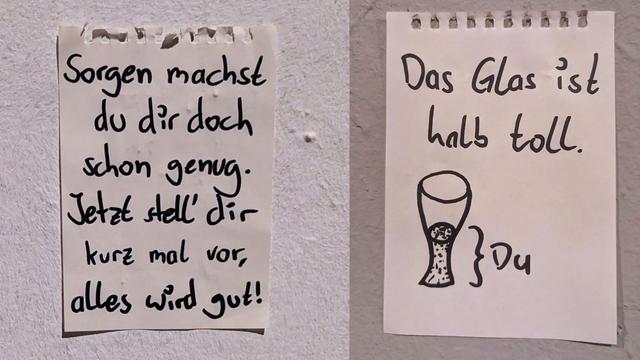 Sorgen machst
du dir doch
schon genug.
Jetzt stell' dir
kurz mal vor,
alles wird gut!
Das Glas ist
halb toll.
Du